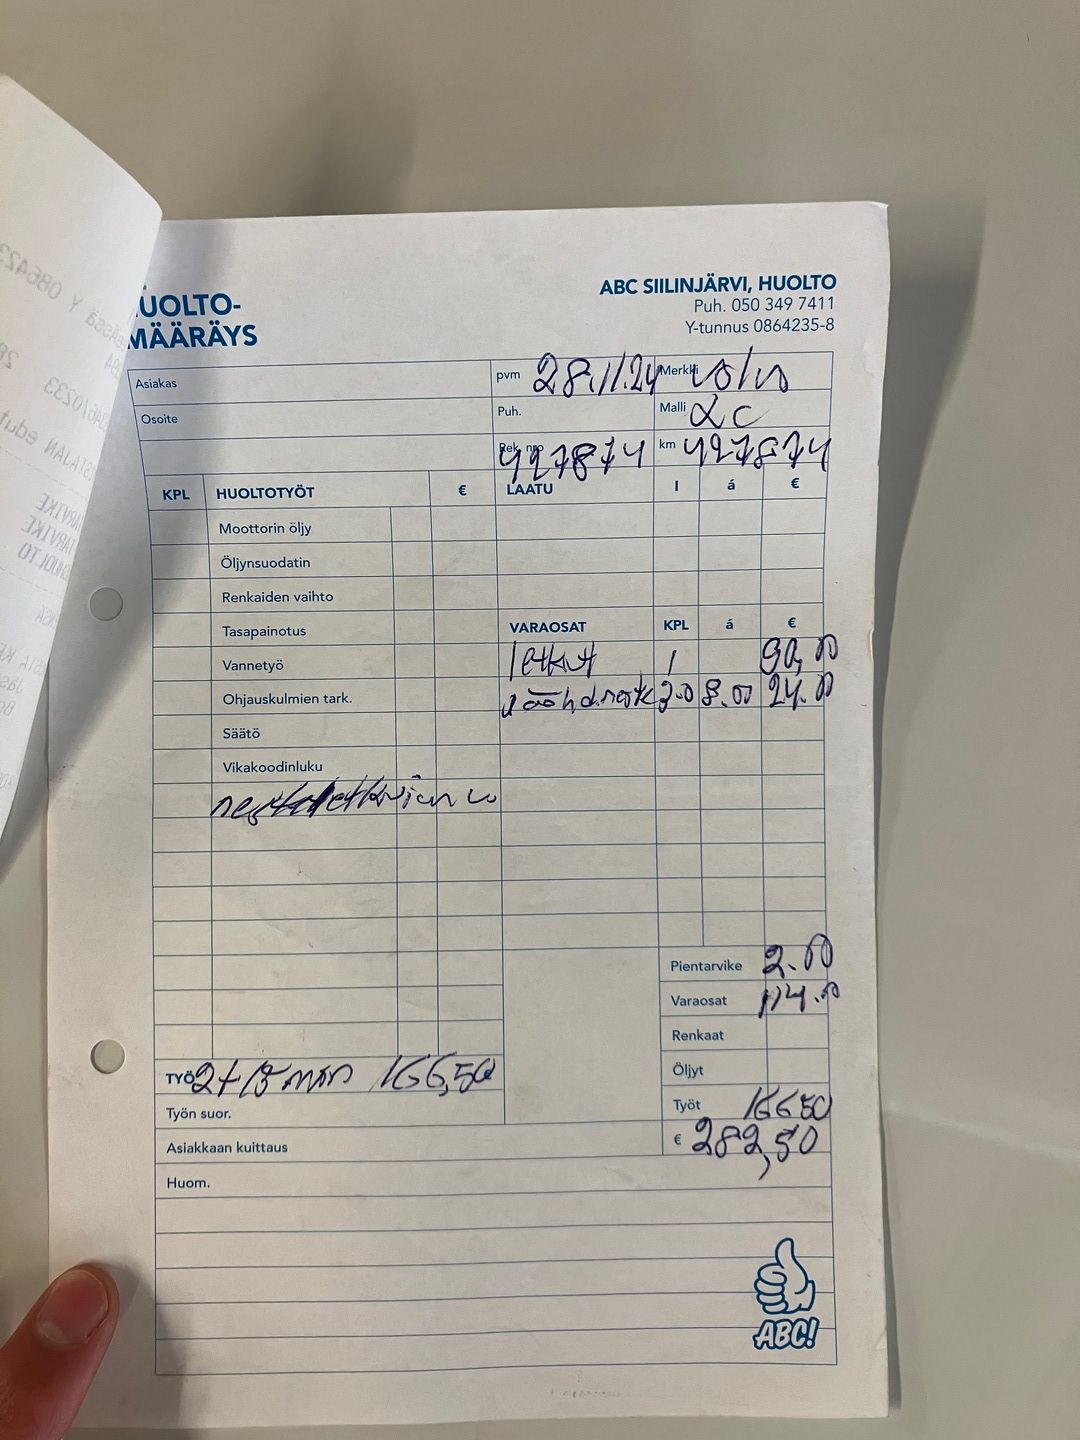 UOLTO-
MÄÄRÄYS
ABC SIILINJÄRVI, HUOLTO
Puh. 050 349 7411
Y-tunnus 0864235-8
Asiakas
pvm 28.11.24
Merkki Volvo
Osoite
Puh.
Malli
Rek. nro 427874
km 427874
KPL HUOLTOTYÖT € LAATU l á €
Moottorin öljy
Öljynsuodatin
Renkaiden vaihto
Tasapainotus VARAOSAT KPL á €
Vannetyö letkut 1 90,00
Ohjauskulmien tark. jäähd.neste 3.0 8.00 24.00
Säätö
Vikakoodinluku
Pientarvike 2.00
Varaosat 114.00
Renkaat
Öljyt
TYÖ 2t 15 min 166,50
Työn suor.
Työt 166 50
Asiakkaan kuittaus
€ 282,50
Huom.
ABC!